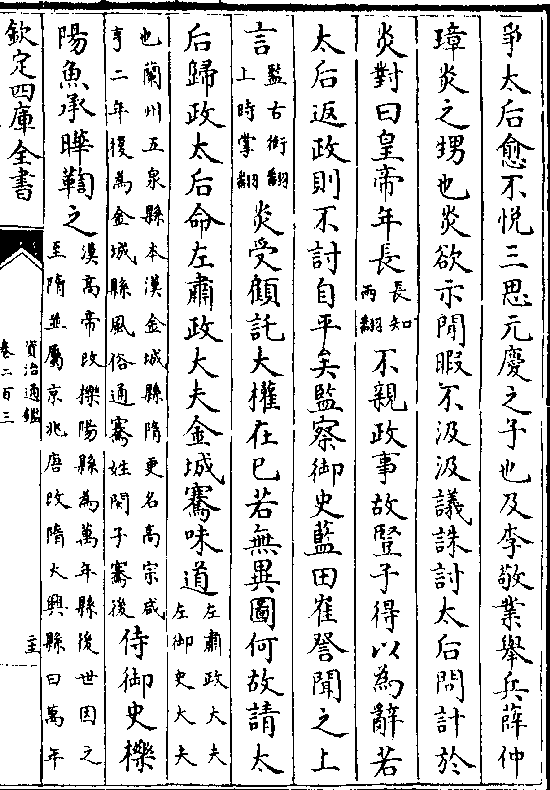 爭太后愈不悦三思元慶之子也及李敬業舉兵薛仲
璋炎之甥也炎欲示閒暇不汲汲議誅討太后問計於
炎對曰皇帝年長長知兩翻不親政事故豎子得以為辭若
太后返政則不討自平矣監察御史藍田崔詧聞之上
言監古銜翻上時掌翻炎受顧託大權在已若無異圖何故請太
后歸政太后命左肅政大夫金城騫味道左肅政大夫左御史大夫
也蘭州五泉縣本漢金城縣隋更名高宗咸亨二年復為金城縣風俗通騫姓閔子騫後侍御史櫟
陽魚承曄鞫之漢高帝改櫟陽縣為萬年縣後世因之至隋並屬京兆唐改隋大興縣曰萬年
欽定四庫全書
資治通鑑
卷二百三